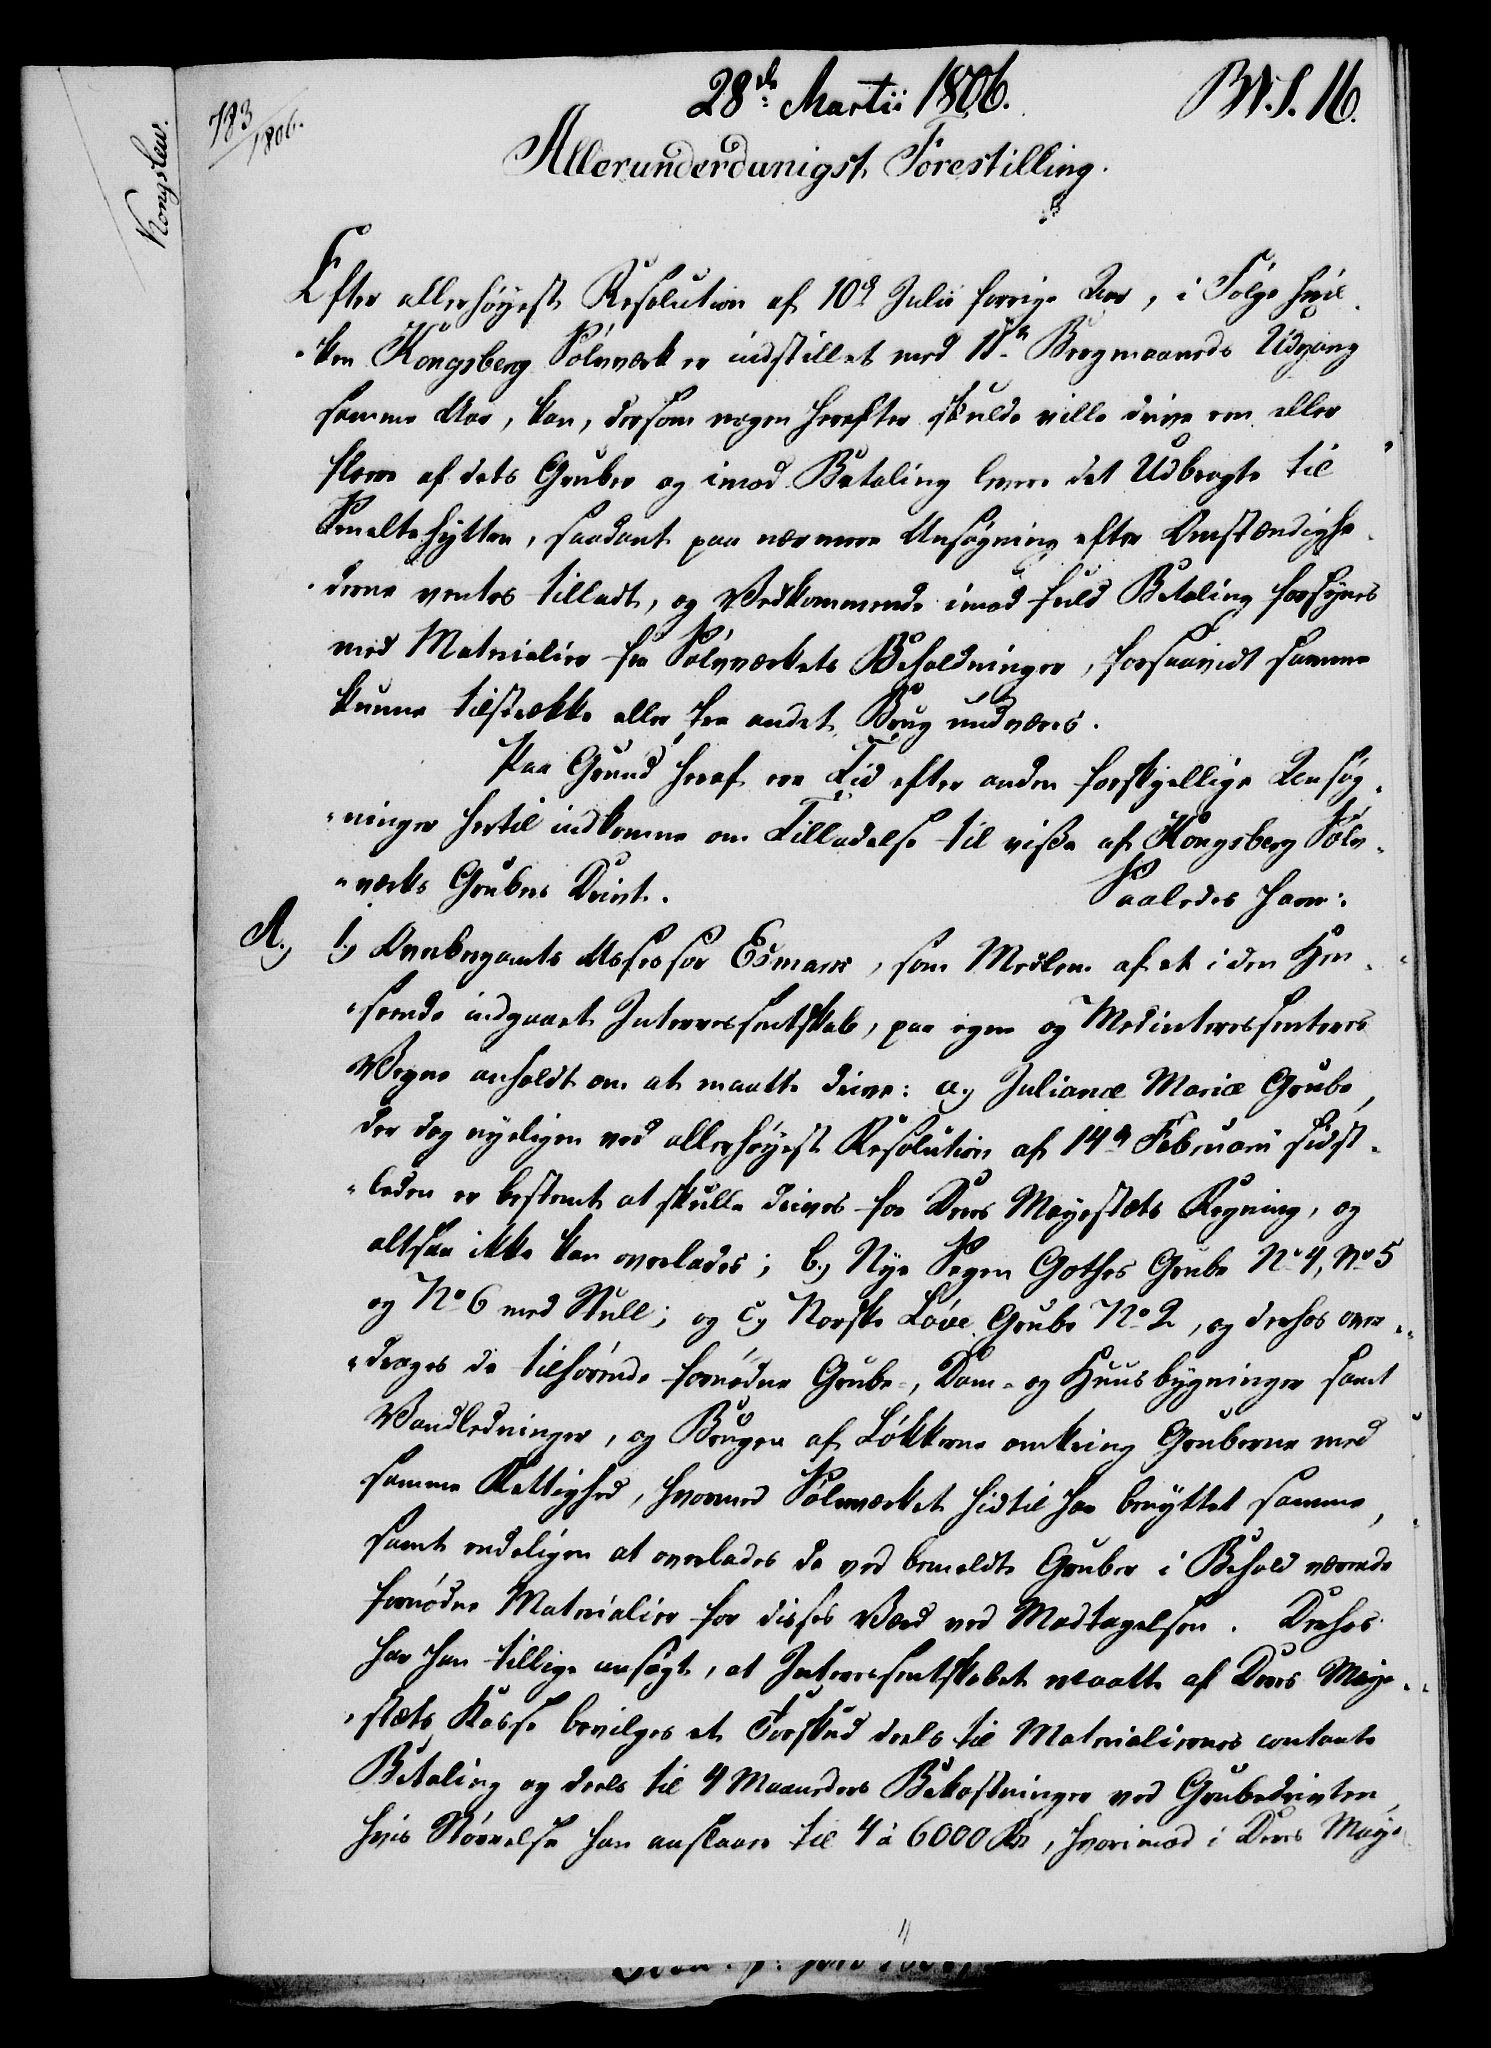 28de Martii 1806.
BW. S. 16.
783/1806.
Kongslew.
Allerunderdanigst Forestilling.
Efter allerhøyest Resolution af 10d Julii forrige Aar, i Følge hvil-
-ken Kongsberg Sølvværk er indstillet med 11te Bergmaaneds Udgang
samme Aar, kan, dersom nogen herefter skulde ville drive een eller
flere af dets Gruber og imod Betaling levere det Udbragte til
Smeltehytten, saadant paa nærmere Ansøgning efter Omstændighe-
-derne ventes tilladt, og Vedkommende imod fuld Betaling forsynes
med Materialier fra Sølvværkets Beholdninger, forsaavidt samme
kunne tilstrække eller fra andet Brug undværes.
Paa Grund heraf ere Tid efter anden forskjellige Ansøg-
-ninger hertil indkomne om Tilladelse til visse af Kongsberg Sølv-
-værks Grubers Drivt. Saaledes har:
A.) 1.) Overbergamts Assessor Esmark, som Medlem af et i den Hen-
-seende indgaaet Interessentskab, paa egne og Medinteressenteres
Vegne anholdt om at maatte drive: a.) Julianæ Mariæ Grube,
der dog nyeligen ved allerhøyest Resolution af 14de Februarii sidst-
-leden er bestemt at skulle drives for Deres Mayestæts Regning, og
altsaa ikke kan overlades; b.) Nye Segen Gottes Grube No 4, No 5
og No 6 med Stull; og c.) Norske Løve Grube No 2, og derhos over-
-drages de tilhørende fornødne Grube-, Dam- og Huusbygninger samt
Vandledninger, og Brugen af Løkkerne omkring Gruberne med
samme Rettighed, hvormed Sølvværket hidtil har benyttet samme,
samt endeligen at overlades de ved bemeldte Gruber i Behold værende
fornødne Materialier for disses Værd ved Modtagelsen. Derhos
har han tillige ansøgt, at Interessentskabet maatte af Deres Maye-
-stæts Kasse bevilges et Forskud deels til Materialiernes contante
Betaling og deels til 4 Maaneders Bekostninger ved Grubedrivten,
hvis Størrelse han anslaaer til 4 à 6000 Rd, hvorimod i Deres Maye